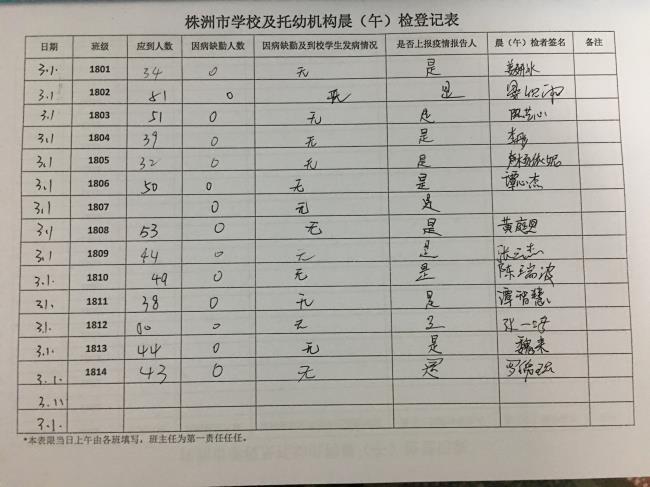 株洲市学校及托幼机构晨（午）检登记表
日期 班级 应到人数 因病缺勤人数 因病缺勤及到校学生发病情况 是否上报疫情报告人 晨（午）检者签名 备注
3.1. 1801 34 0 无 是
3.1 1802 51 0 无 是
3.1 1803 51 0 无 是
3.1 1804 39 0 无 是
3.1 1805 32 0 无 是
3.1 1806 50 0 无 是 谭心杰
3.1 1807 0 无 是
3.1 1808 53 0 无 是 黄庭恩
3.1 1809 44 0 无 是 张云志
3.1. 1810 49 0 无 是 陈瑞波
3.1. 1811 38 0 无 是 谭智慧
3.1. 1812 0 无
3.1. 1813 44 0 无 是 魏来
3.1. 1814 43 0 无 是
3.11
3.1.
*本表限当日上午由各班填写，班主任为第一责任任任。